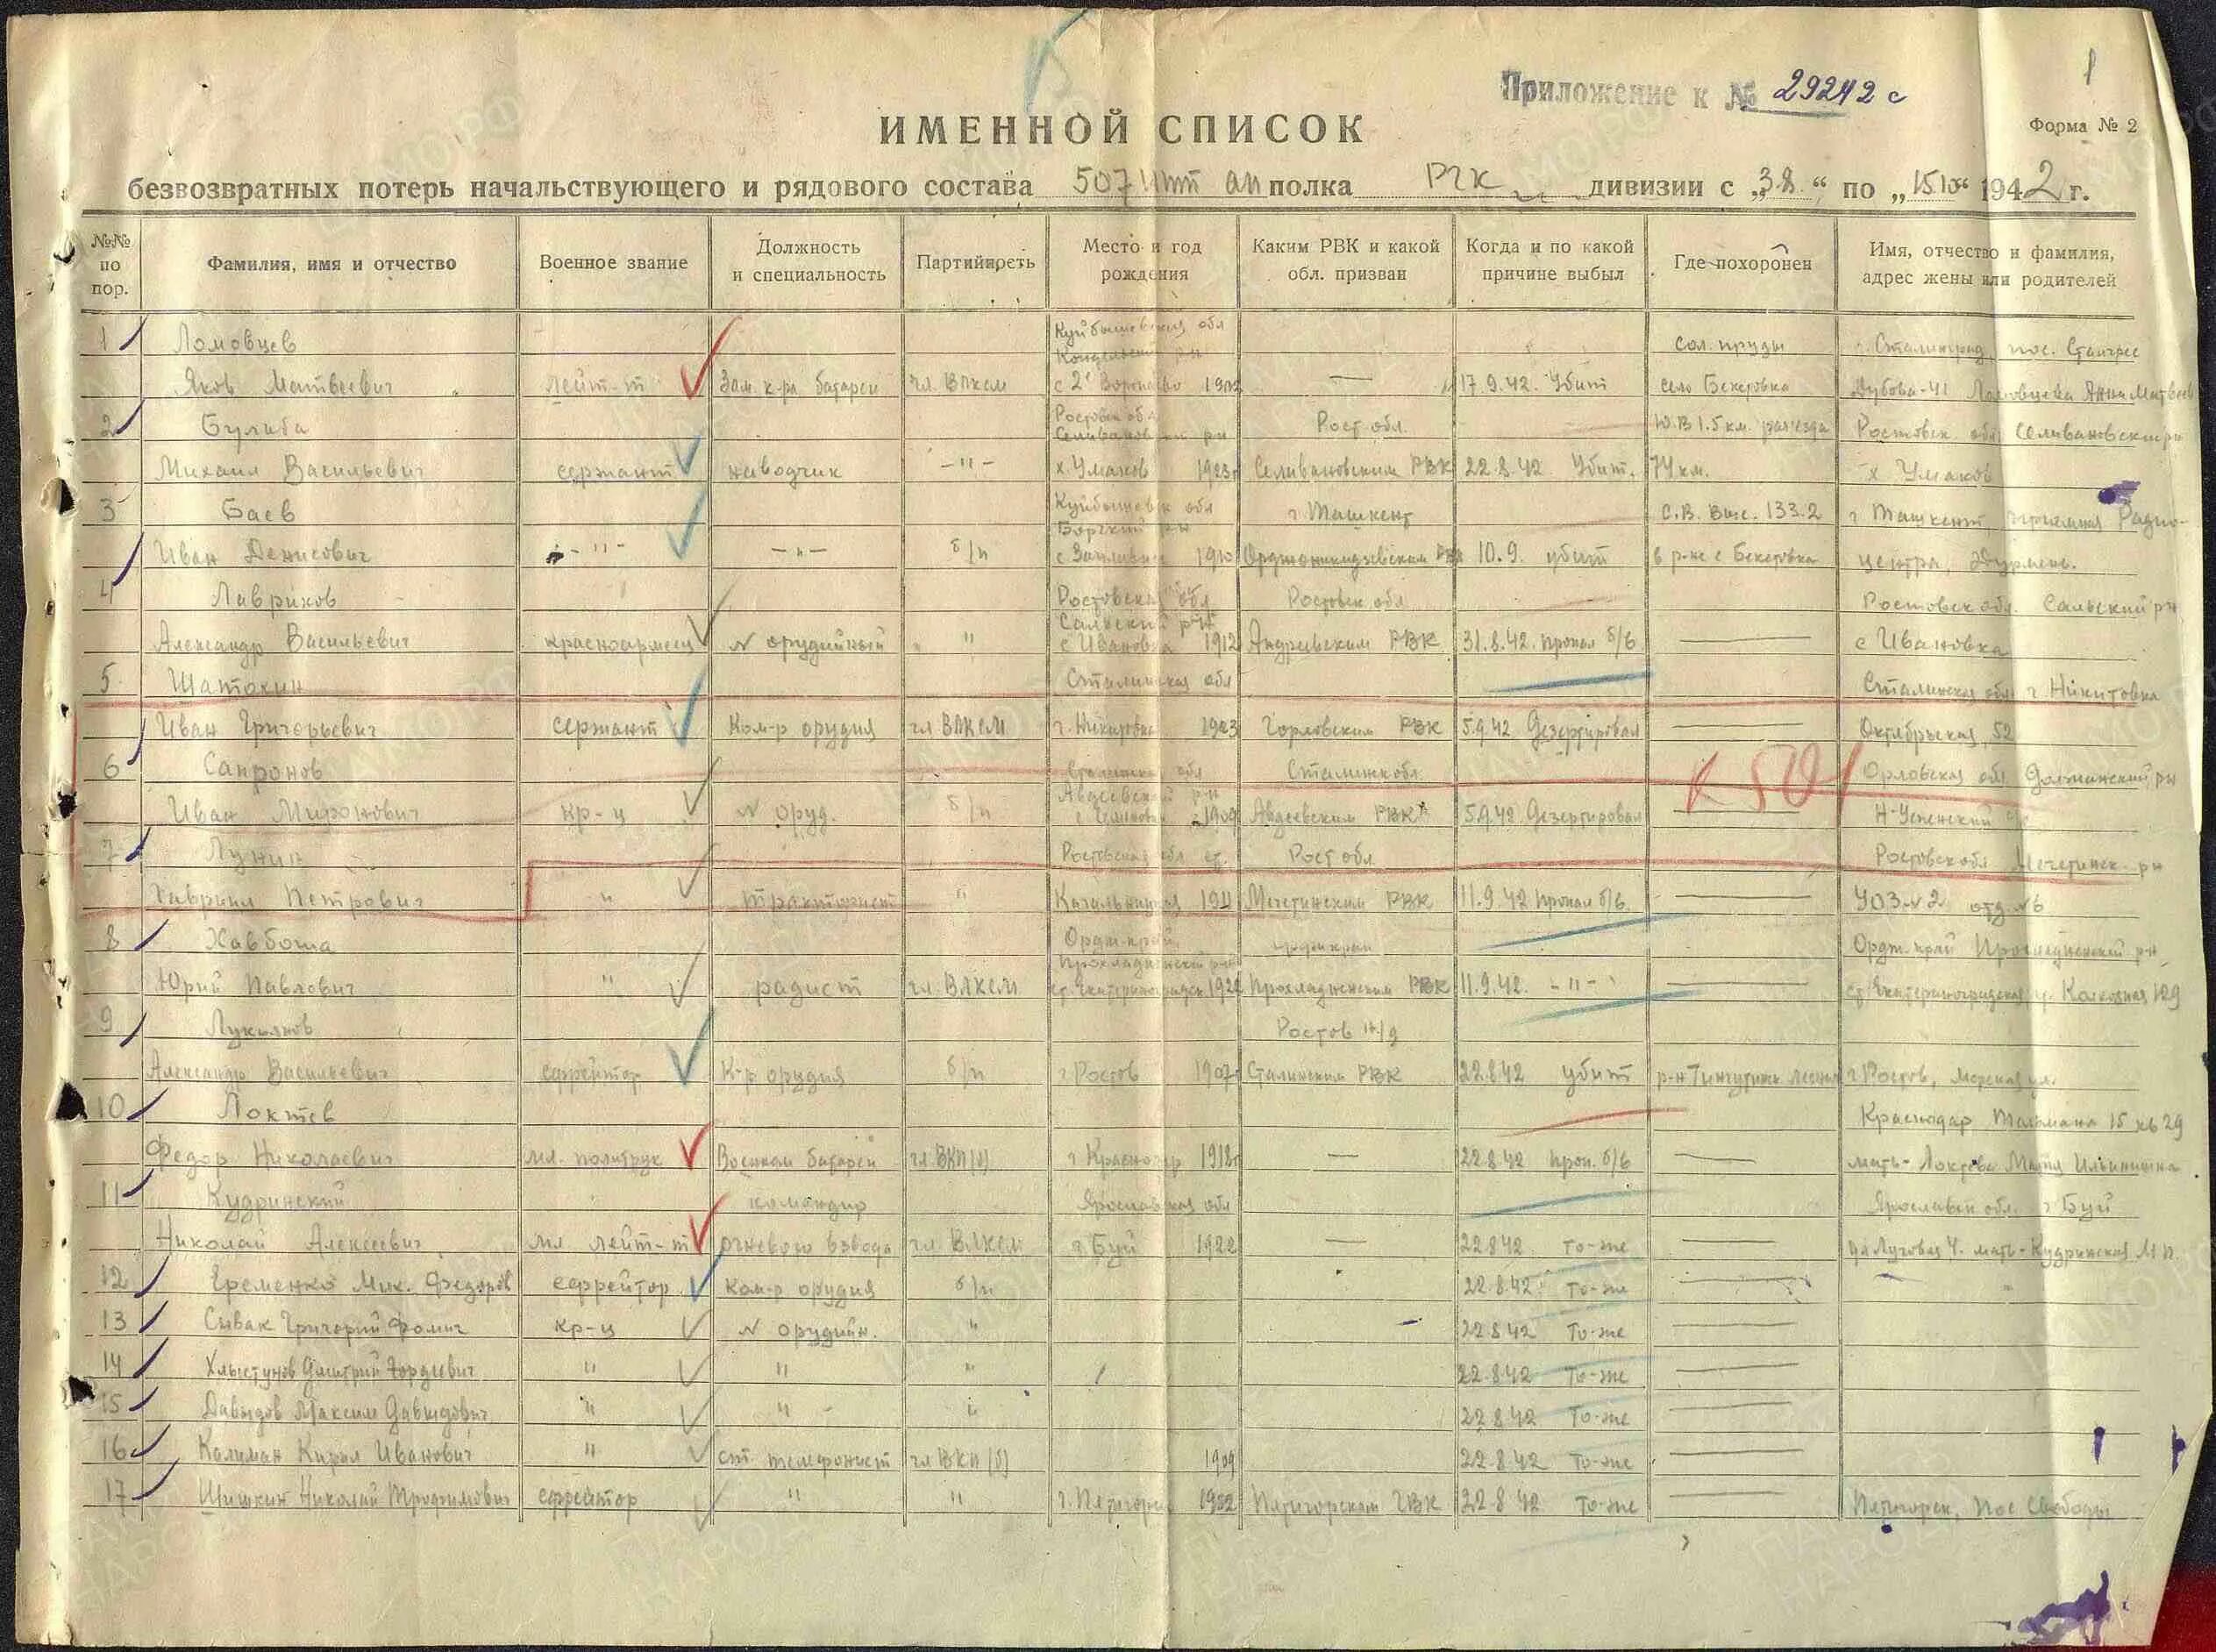 Приложение к № 29242 с
1
ИМЕННОЙ СПИСОК
Форма № 2
безвозвратных потерь начальствующего и рядового состава 507 ап полка РГК дивизии с „3.8.“ по „15.10“ 1942 г.
№№ по пор. Фамилия, имя и отчество Военное звание Должность и специальность Партийность Место и год рождения Каким РВК и какой обл. призван Когда и по какой причине выбыл Где похоронен Имя, отчество и фамилия, адрес жены или родителей
1 Ломовцев Куйбышевская обл сол. пруды г. Сталинград, пос. Сталгрес
Яков Матвеевич лейт-т Зам. к-ра батареи чл. ВЛКСМ с 2е — 17.9.42. Убит село Бекетовка Дубова-41 Ломовцева Анна Матвеев
2 Булиба Ростовск обл Рост обл. Ю.В 1.5 км. раз'езда Ростовск. обл Селивановский рн
Селивановский рн
Михаил Васильевич сержант наводчик -"- х. Умаков 1923г Селивановским РВК 22.8.42 Убит. 74 км. х Умаков
3 Баев Куйбышевск обл г Ташкент С.В. Выс. 133.2 г Ташкент Радио-
Борский р-н
Иван Денисович -"- -"- б/п с 1910 Орджоникидзевским РВК 10.9. убит в р-не с Бекетовка центра,
4 Лавриков Ростовская обл Ростовск обл Ростовск обл. Сальский р-н
Сальский р-н
Александр Васильевич красноармеец № орудийный " с Ивановка 1912 Андреевским РВК 31.8.42. пропал б/в — с Ивановка
5 Шатохин Сталинская обл Сталинская обл г Никитовка
Иван Григорьевич сержант Ком-р орудия чл ВЛКСМ г. Никитовка 1923 Горловским РВК 5.9.42 Дезертировал — Октябрьская, 52
6 Сапронов Сталинская обл Сталинск обл. К 501 Орловская обл. Должанский рн
Авдеевский р-н
Иван Миронович кр-ц № оруд. б/п 1909 Авдеевским РВК 5.9.42 Дезертировал Н-Успенский
7 Лунин Ростовская обл ст. Рост обл Ростовск обл Мечетинск. р-н
Гавриил Петрович " тракторист " Кагальницкая 1911 Мечетинским РВК 11.9.42 пропал б/в. — УОЗ-№2 отд. №6
8 Хавбоша Ордж-край Орджкрай Ордж. край Прохладненский рн
Прохладненский р-н
Юрий Павлович " радист чл. ВЛКСМ ст. Екатериноградск. Прохладненским РВК 11.9.42. -"- — ст. Екатериноградская Колхозная 129
9 Лукьянов Ростов н/д
Александр Васильевич ефрейтор К-р орудия б/п г Ростов 1907г Сталинским РВК 22.8.42 убит р-н г Ростов, Морская ул.
10 Локтев Краснодар Тельмана 15 кв 29
Федор Николаевич мл. политрук Военком батареи чл. ВКП(б) г Краснодар 1918г — 22.8.42 проп. б/в — мать- Локтева Мария Ильинишна
11 Кудринский командир Ярославская обл Ярославск обл. г Буй
Николай Алексеевич мл лейт-т огневого взвода чл. ВЛКСМ г. Буй 1922 — 22.8.42 то-же — ул Луговая 4. мать-Кудринская М П.
12 Еременко Мих. Федоров ефрейтор ком-р орудия б/п 22.8.42 то-же —
13 Сывак Григорий Фомич кр-ц № орудийн. " 22.8.42 то-же —
14 Хлыстунов Дмитрий Гордеевич " " " 22.8.42 то-же —
15 Давыдов Максим Давыдович " " " 22.8.42 то-же —
16 Калиман Кирил Иванович " ст телефонист чл ВКП(б) 1909 22.8.42 то-же —
17 Шишкин Николай Трофимович ефрейтор " " г. Пятигорск 1902 Пятигорским ГВК 22.8.42 то-же — Пятигорск, пос Свободы